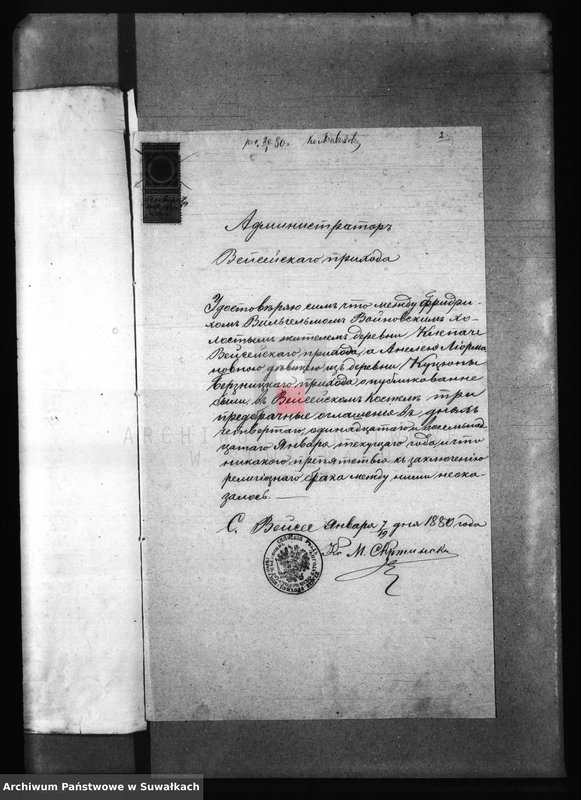 2
Администраторъ
Вейсейскаго прихода
Удостовѣряю симъ что между Фридри-
хомъ Вильгельмомъ Войновскимъ хо-
лостымъ жителемъ деревни
Вейсейскаго прихода, а Анелею
новною дѣвицею изъ деревни Куцюны
Бержницкаго прихода, опубликованне
были, въ Вейсейскомъ Костелѣ три
предбрачные оглашенія въ дняхъ
четвертаго, одинадцатаго и восемнад-
цатаго Января текущаго года и что
никакого препятствія къ заключенію
религіознаго брака между ними неска-
залось.
С. Вейсее Января 7/19 дня 1880 года
Кс М.
ARCHI
Archiwum Państwowe w Suwałkach